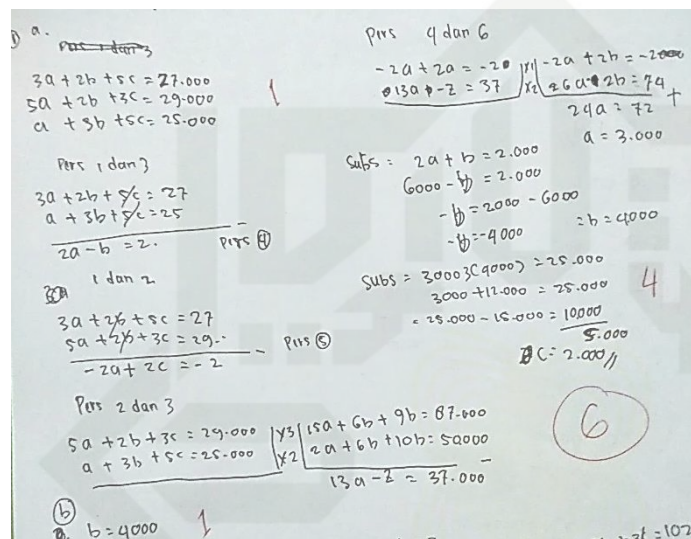 ① a.
Pers 1 dan 3
3a + 2b + 5c = 27.000
5a + 2b + 3c = 29.000
a + 3b + 5c = 25.000
1
Pers 1 dan 3
3a + 2b + 5c = 27
a + 3b + 5c = 25
2a - b = 2. Pers ④
1 dan 2
3a + 2b + 5c = 27
5a + 2b + 3c = 29..
-2a + 2c = -2 Pers ⑤
Pers 2 dan 3
5a + 2b + 3c = 29.000 | x3 | 15a + 6b + 9b = 87.000
a + 3b + 5c = 25.000 | x2 | 2a + 6b + 10b = 50000
13a - z = 37.000
ⓑ
a. b = 4000
1
Pers 4 dan 6
-2a + 2a = -20 | x1 | -2a + 2b = -2000
13a - z = 37 | x2 | 26a 2b = 74 +
24a = 72
a = 3.000
Subs = 2a + b = 2.000
6000 - b = 2.000
-b = 2000 - 6000
-b = -4000 = b = 4000
Subs = 30003(4000) = 25.000
3000 + 12.000 = 25.000
= 25.000 - 15.000 = 10.000
5.000
C = 2.000 //
4
6
= 102